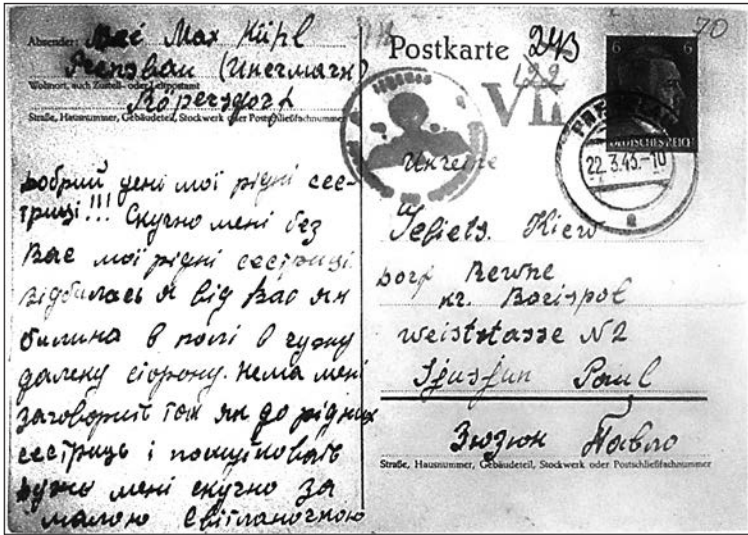 70
Absender: Max Küpl
Prenzlau (Ukermark)
Wohnort, auch Zustell- oder Leitpostamt
Röpersdorf
Straße, Hausnummer, Gebäudeteil, Stockwerk oder Postschließfachnummer
Добрий день мої рідні сес-
триці!!! Скучно мені без
Вас мої рідні сестриці.
Відбилась я від Вас як
билина в полі в чужу
далеку сторону. Нема мені
заговорить так як до рідних
сестриць і пощитковать
дужо мені скучно за
малою Світланочкою
Postkarte 243
122
VII
6 6
DEUTSCHES REICH
22.3.43.-10
a
Ukreine
Gebiets. Kiew
dorf Rewne
kr. Borispol
weiststasse N2
Sjusjun Paul
Зюзюн Павло
Straße, Hausnummer, Gebäudeteil, Stockwerk oder Postschließfachnummer